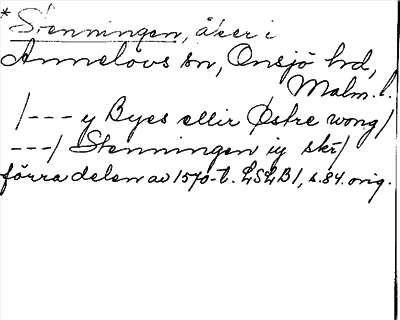 * Stenningen, åker i
Annelövs sn, Onsjö hd,
Malm. l.
/--- y Byes ellir Østre wong/
---/ Stenningen iy skr/
förra delen av 1570-t. LSLB1, s. 84. orig.